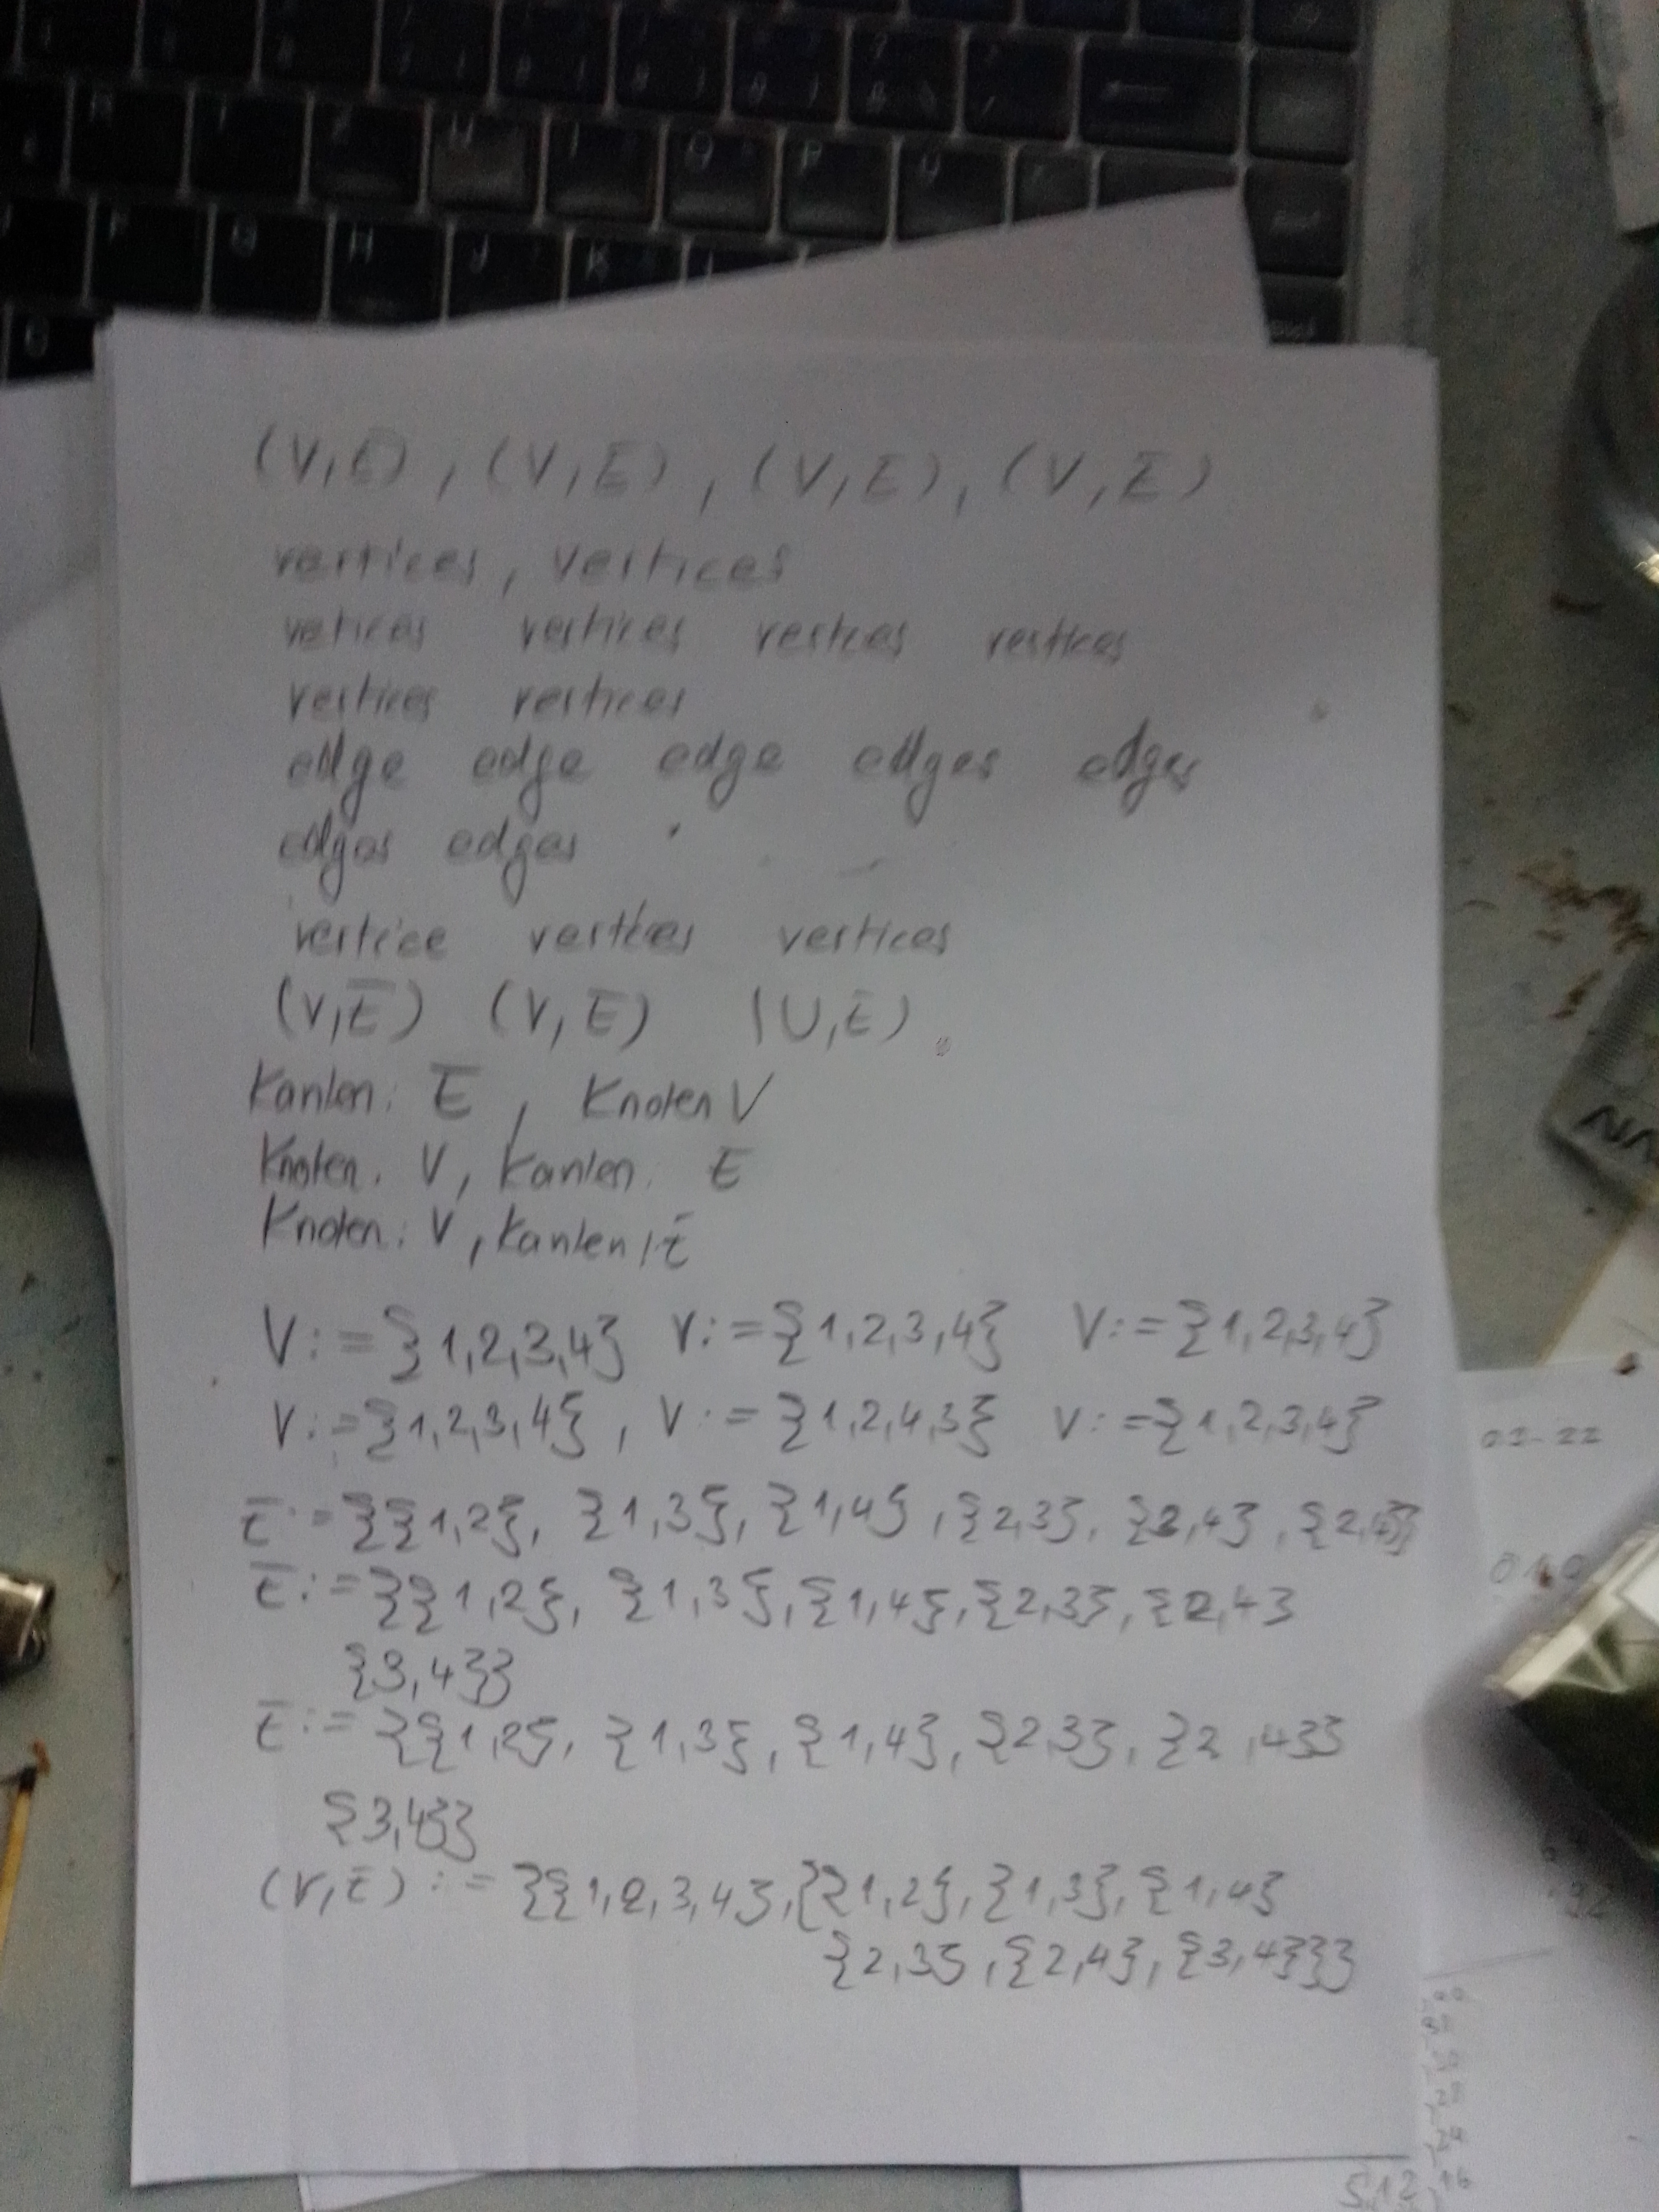 (V,E), (V,E), (V,E), (V,E)
vertices, vertices
vetices vertices vertices vertices
vertices vertices
edge edge edge edges edges
edges edges
vertice vertices vertices
(V,E) (V,E) (U,E)
Kanten: E, Knoten V
Knoten: V, Kanten: E
Knoten: V, Kanten: E
V:={1,2,3,4} V:={1,2,3,4} V:={1,2,3,4}
V:={1,2,3,4}, V:={1,2,4,3} V:={1,2,3,4}
E:={{1,2}, {1,3}, {1,4}, {2,3}, {2,4}, {2,4}}
E:={{1,2}, {1,3}, {1,4}, {2,3}, {2,4}
{3,4}}
E:={{1,2}, {1,3}, {1,4}, {2,3}, {2,4}}
{3,4}}
(V,E):={{1,2,3,4},{{1,2}, {1,3}, {1,4}
{2,3}, {2,4}, {3,4}}}
512